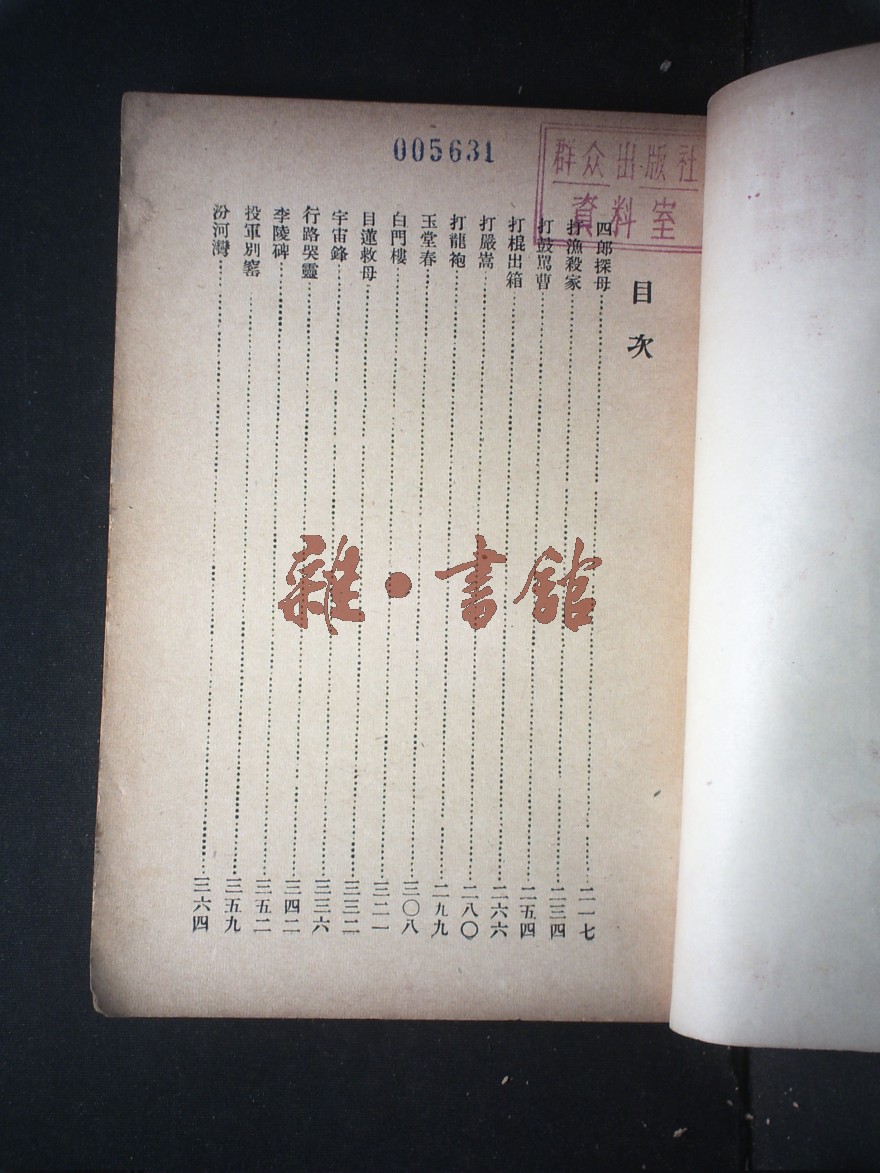 005631
群众出版社
資料室
目次
四郎探母……二一七
打漁殺家……二三四
打鼓罵曹……二五四
打棍出箱……二六六
打嚴嵩……二八〇
打龍袍……二九九
玉堂春……三〇八
白門樓……三二一
目蓮救母……三三二
宇宙鋒……三三六
行路哭靈……三四二
李陵碑……三五二
投軍別窰……三五九
汾河灣……三六四
雜·書館